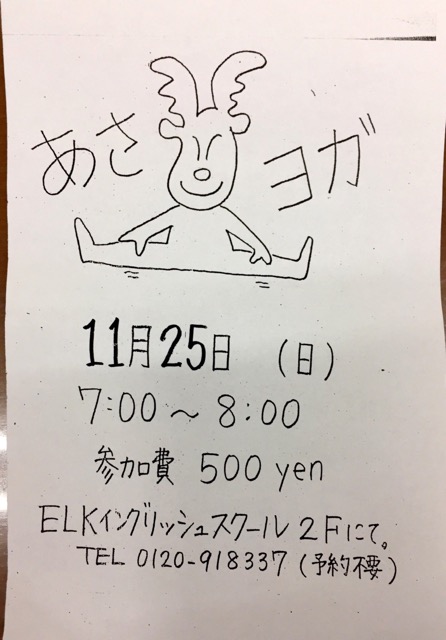 あさ ヨガ
11月25日 (日)
7:00 〜 8:00
参加費 500 yen
ELKイングリッシュスクール 2Fにて。
TEL 0120-918337 (予約不要)